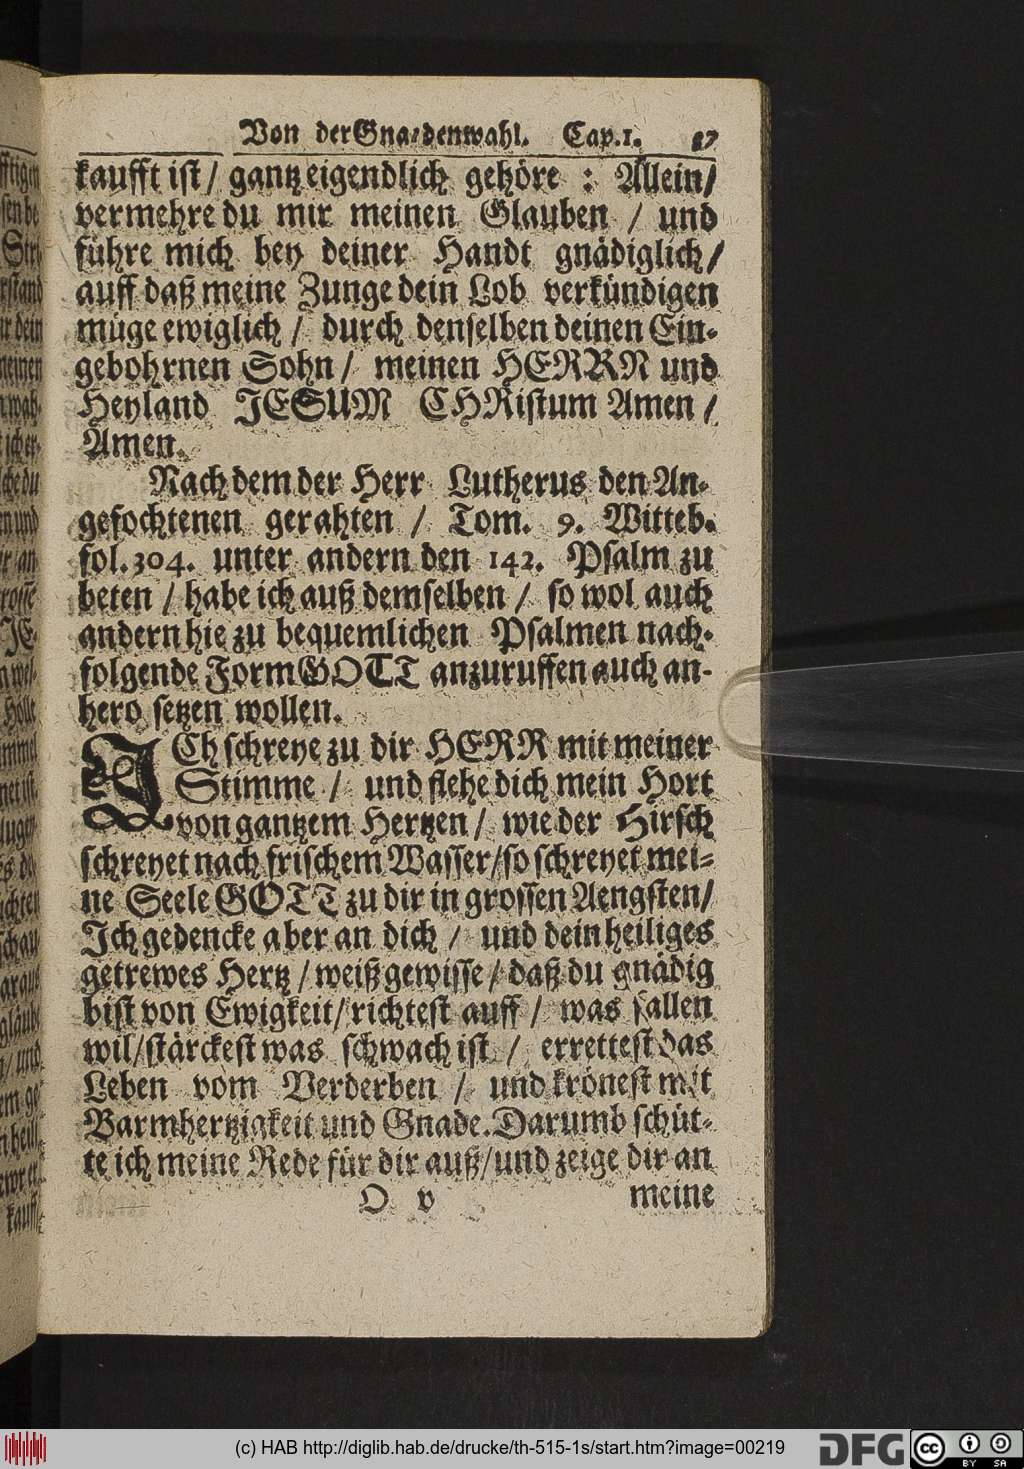 Von der Gna⸗denwahl. Cap.1. 87
kaufft ist/ gantz eigendlich gehöre : Allein/
vermehre du mir meinen Glauben / und
führe mich bey deiner Handt gnädiglich/
auff daß meine Zunge dein Lob verkündigen
müge ewiglich / durch denselben deinen Ein⸗
gebohrnen Sohn / meinen HERRN und
Heyland JESUM CHRistum Amen /
Amen.
Nach dem der Herr Lutherus den An⸗
gefochtenen gerahten / Tom. 9. Witteb.
fol. 304. unter andern den 142. Psalm zu
beten / habe ich auß demselben / so wol auch
andern hie zu bequemlichen Psalmen nach⸗
folgende Form GOTT anzuruffen auch an⸗
hero setzen wollen.
ICh schreye zu dir HERR mit meiner
Stimme / und flehe dich mein Hort
von gantzem Hertzen / wie der Hirsch
schreyet nach frischem Wasser/so schreyet mei⸗
ne Seele GOTT zu dir in grossen Aengsten/
Ich gedencke aber an dich / und dein heiliges
getrewes Hertz / weiß gewisse / daß du gnädig
bist von Ewigkeit/ richtest auff / was fallen
wil/stärckest was schwach ist / errettest das
Leben vom Verderben / und krönest mit
Barmhertzigkeit und Gnade. Darumb schüt⸗
te ich meine Rede für dir auß/und zeige dir an
O v meine
(c) HAB http://diglib.hab.de/drucke/th-515-1s/start.htm?image=00219
DFG
cc BY SA